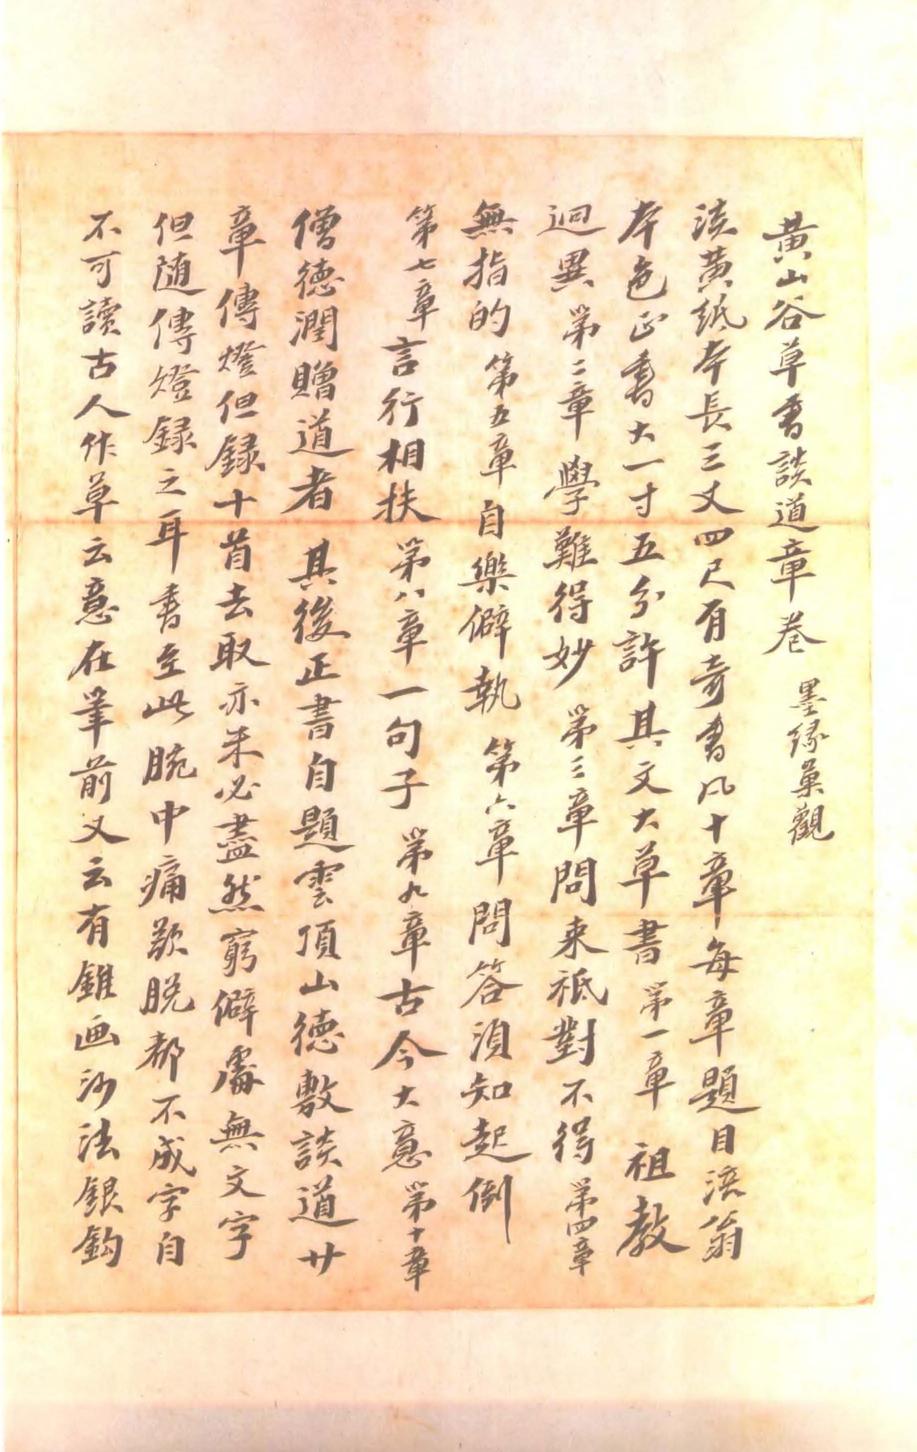 黃山谷草書談道章卷 墨緣彙觀
淡黃紙本長三丈四尺有奇書凡十章每章題目涪翁
本色正書大一寸五分許其文大草書 第一章 祖教
迥異 第二章 學難得妙 第三章 問来祗對不得 第四章
無指的 第五章 自樂僻執 第六章 問答須知起倒
第七章 言行相扶 第八章 一句子 第九章 古今大意 第十章
僧德潤贈道者 其後正書自題雲頂山德敷談道廿
章傳燈但録十首去取亦未必盡然窮僻處無文字
但随傳燈録之耳書至此腕中痛欲脱都不成字自
不可讀古人作草云意在筆前又云有錐画沙法銀鈎